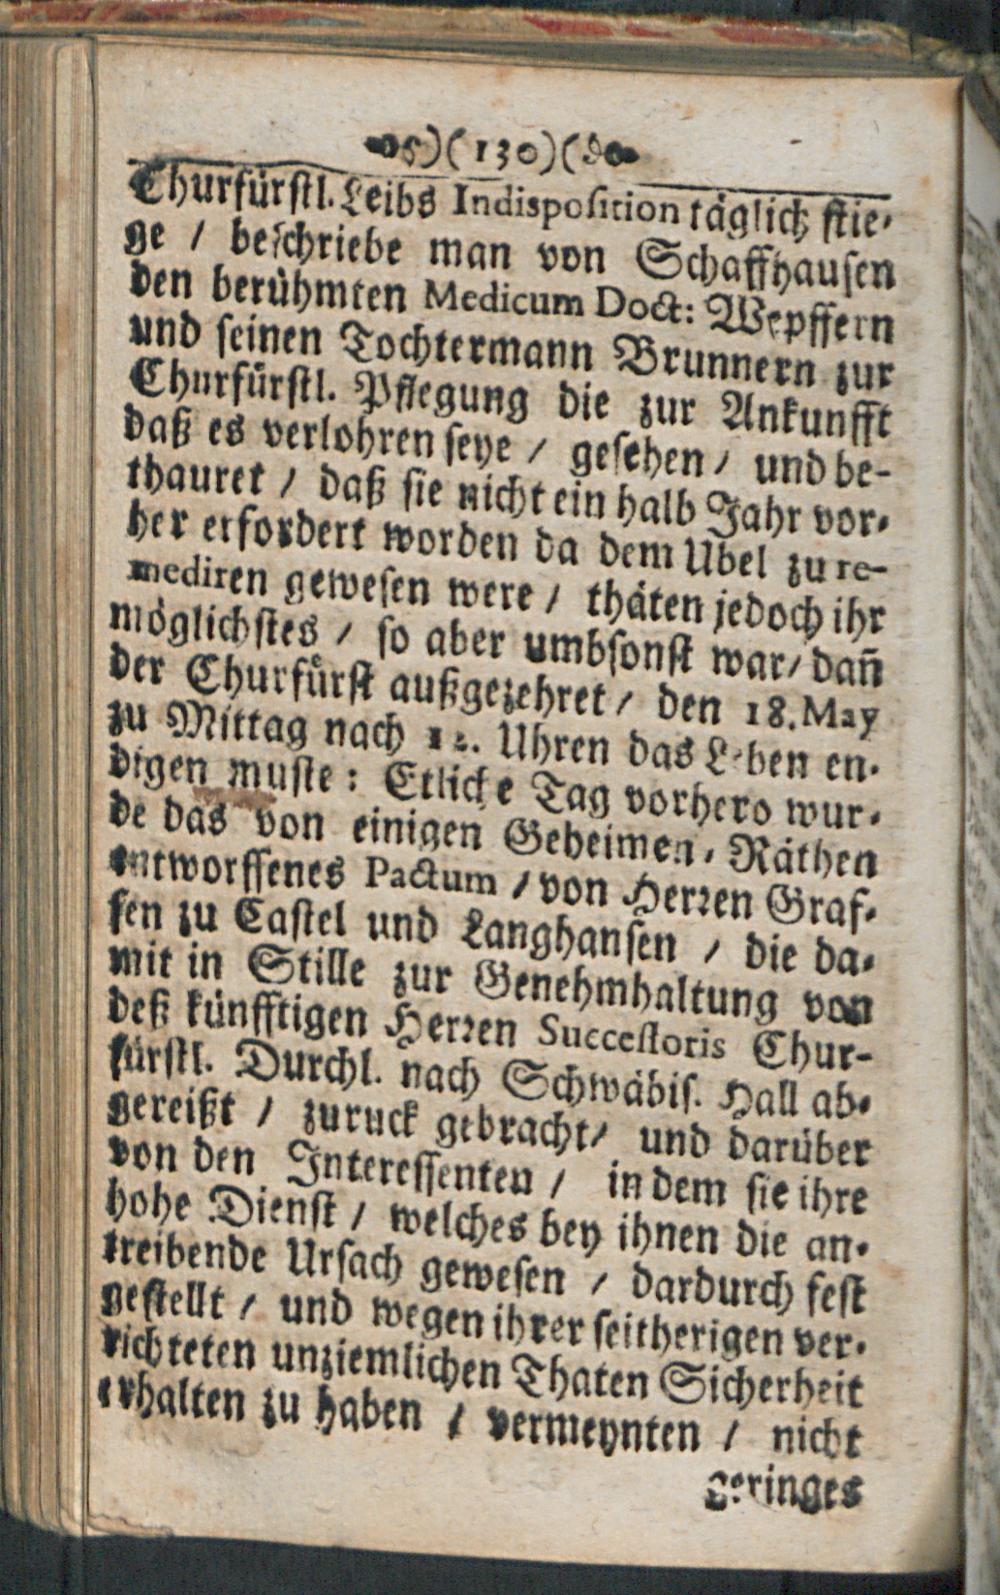 )(130)(
Churfürstl. Leibs Indisposition täglich stie-
ge / beschriebe man von Schaffhausen
den berühmten Medicum Doct: Wepffern
und seinen Tochtermann Brunnern zur
Churfürstl. Pflegung die zur Ankunfft
daß es verlohren seye / gesehen / und be-
thauret / daß sie nicht ein halb Jahr vor-
her erfordert worden da dem Ubel zu re-
mediren gewesen were / thäten jedoch ihr
möglichstes / so aber umbsonst war / dañ
der Churfürst außgezehret / den 18. May
zu Mittag nach 12. Uhren das Leben en-
digen muste: Etliche Tag vorhero wur-
de das von einigen Geheimen-Räthen
entworffenes Pactum / von Herren Graf-
fen zu Castel und Langhansen / die da-
mit in Stille zur Genehmhaltung von
deß künfftigen Herren Successoris Chur-
fürstl. Durchl. nach Schwäbis. Hall ab-
gereißt / zuruck gebracht / und darüber
von den Interessenten / in dem sie ihre
hohe Dienst / welches bey ihnen die an-
treibende Ursach gewesen / dardurch fest
gestellt / und wegen ihrer seitherigen ver-
richteten unziemlichen Thaten Sicherheit
erhalten zu haben / vermeynten / nicht
geringes